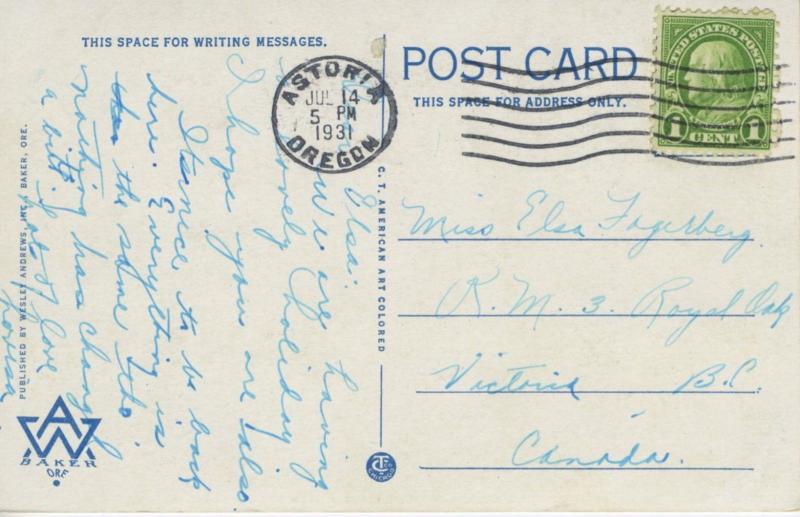 THIS SPACE FOR WRITING MESSAGES.
Dear Elsa:
We are having
a lovely holiday
I hope you are also.
It's nice to be back
here. Everything is
the same & the
nothing has changed
a bit. Lots of love
Lovisa
ASTORIA
JUL 14
5 PM
1931
OREGON
POST CARD
THIS SPACE FOR ADDRESS ONLY.
UNITED STATES POSTAGE
1 CENT 1
Miss Elsa Fagerberg.
R. M. 3. Royal Oak
Victoria B.C.
Canada.
C. T. AMERICAN ART COLORED
PUBLISHED BY WESLEY ANDREWS, INC., BAKER, ORE.
AW
BAKER
ORE
CHICAGO